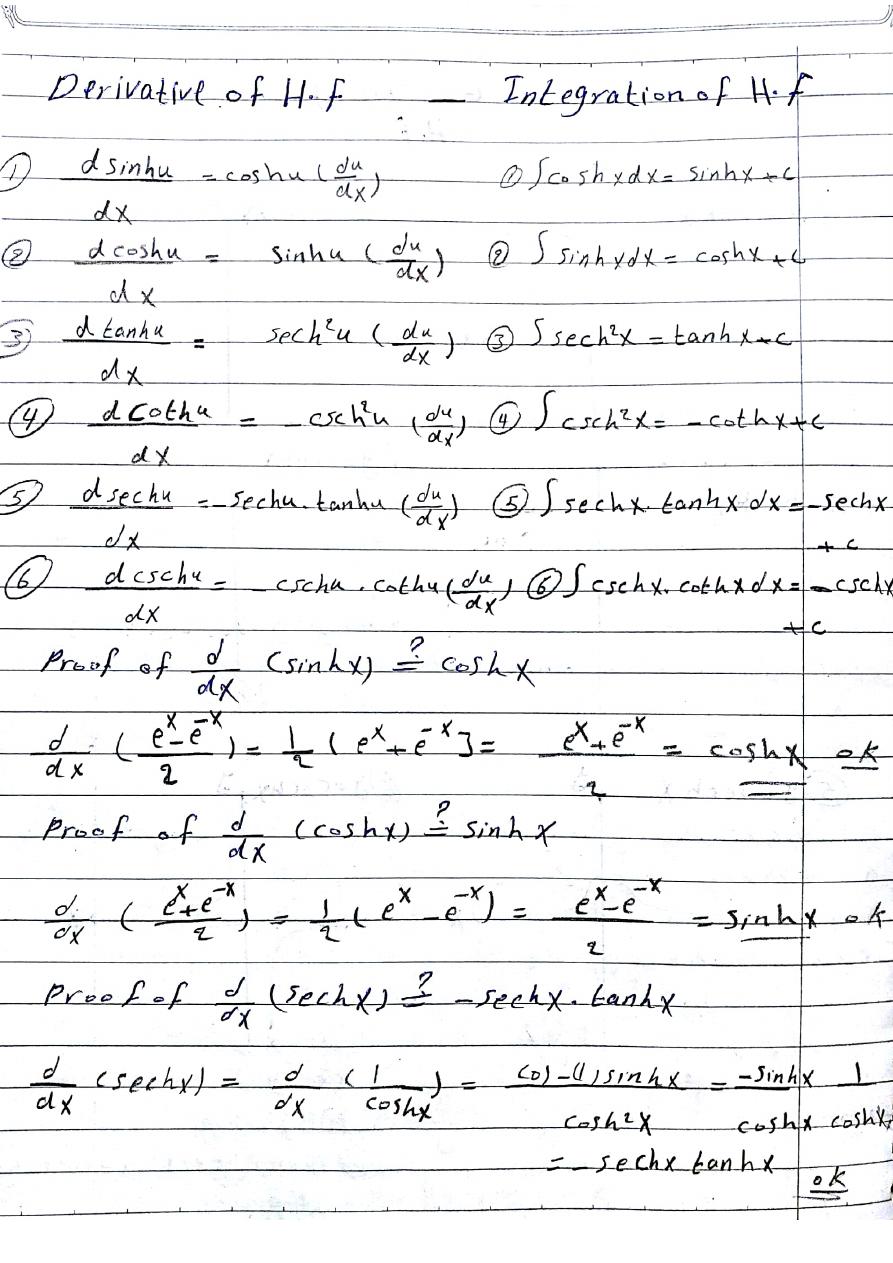 Derivative of H.f — Integration of H.f
① d sinhu/dx = coshu (du/dx) ① ∫coshxdx = sinhx+c
② d coshu/dx = sinhu (du/dx) ② ∫ sinhxdx = coshx+c
③ d tanhu/dx = sech²u (du/dx) ③ ∫sech²x = tanhx+c
④ d cothu/dx = -csch²u (du/dx) ④ ∫ csch²x = -cothx+c
⑤ d sechu/dx = -sechu.tanhu (du/dx) ⑤ ∫ sechx.tanhx dx = -sechx
+ c
⑥ d cschu/dx = -cschu.cothu (du/dx) ⑥ ∫cschx.cothx dx = -cschx
+ c
Proof of d/dx (sinhx) ?= coshx
d/dx (e^x-e^-x/2) = 1/2 (e^x+e^-x] = e^x+e^-x/2 = coshx ok
Proof of d/dx (coshx) ?= sinhx
d/dx (e^x+e^-x/2) = 1/2 (e^x-e^-x) = e^x-e^-x/2 = sinhx ok
Proof of d/dx (sechx) ?= -sechx.tanhx
d/dx (sechx) = d/dx (1/coshx) = (0)-(1)sinhx/cosh²x = -sinhx/coshx 1/coshx
= -sechx tanhx
ok